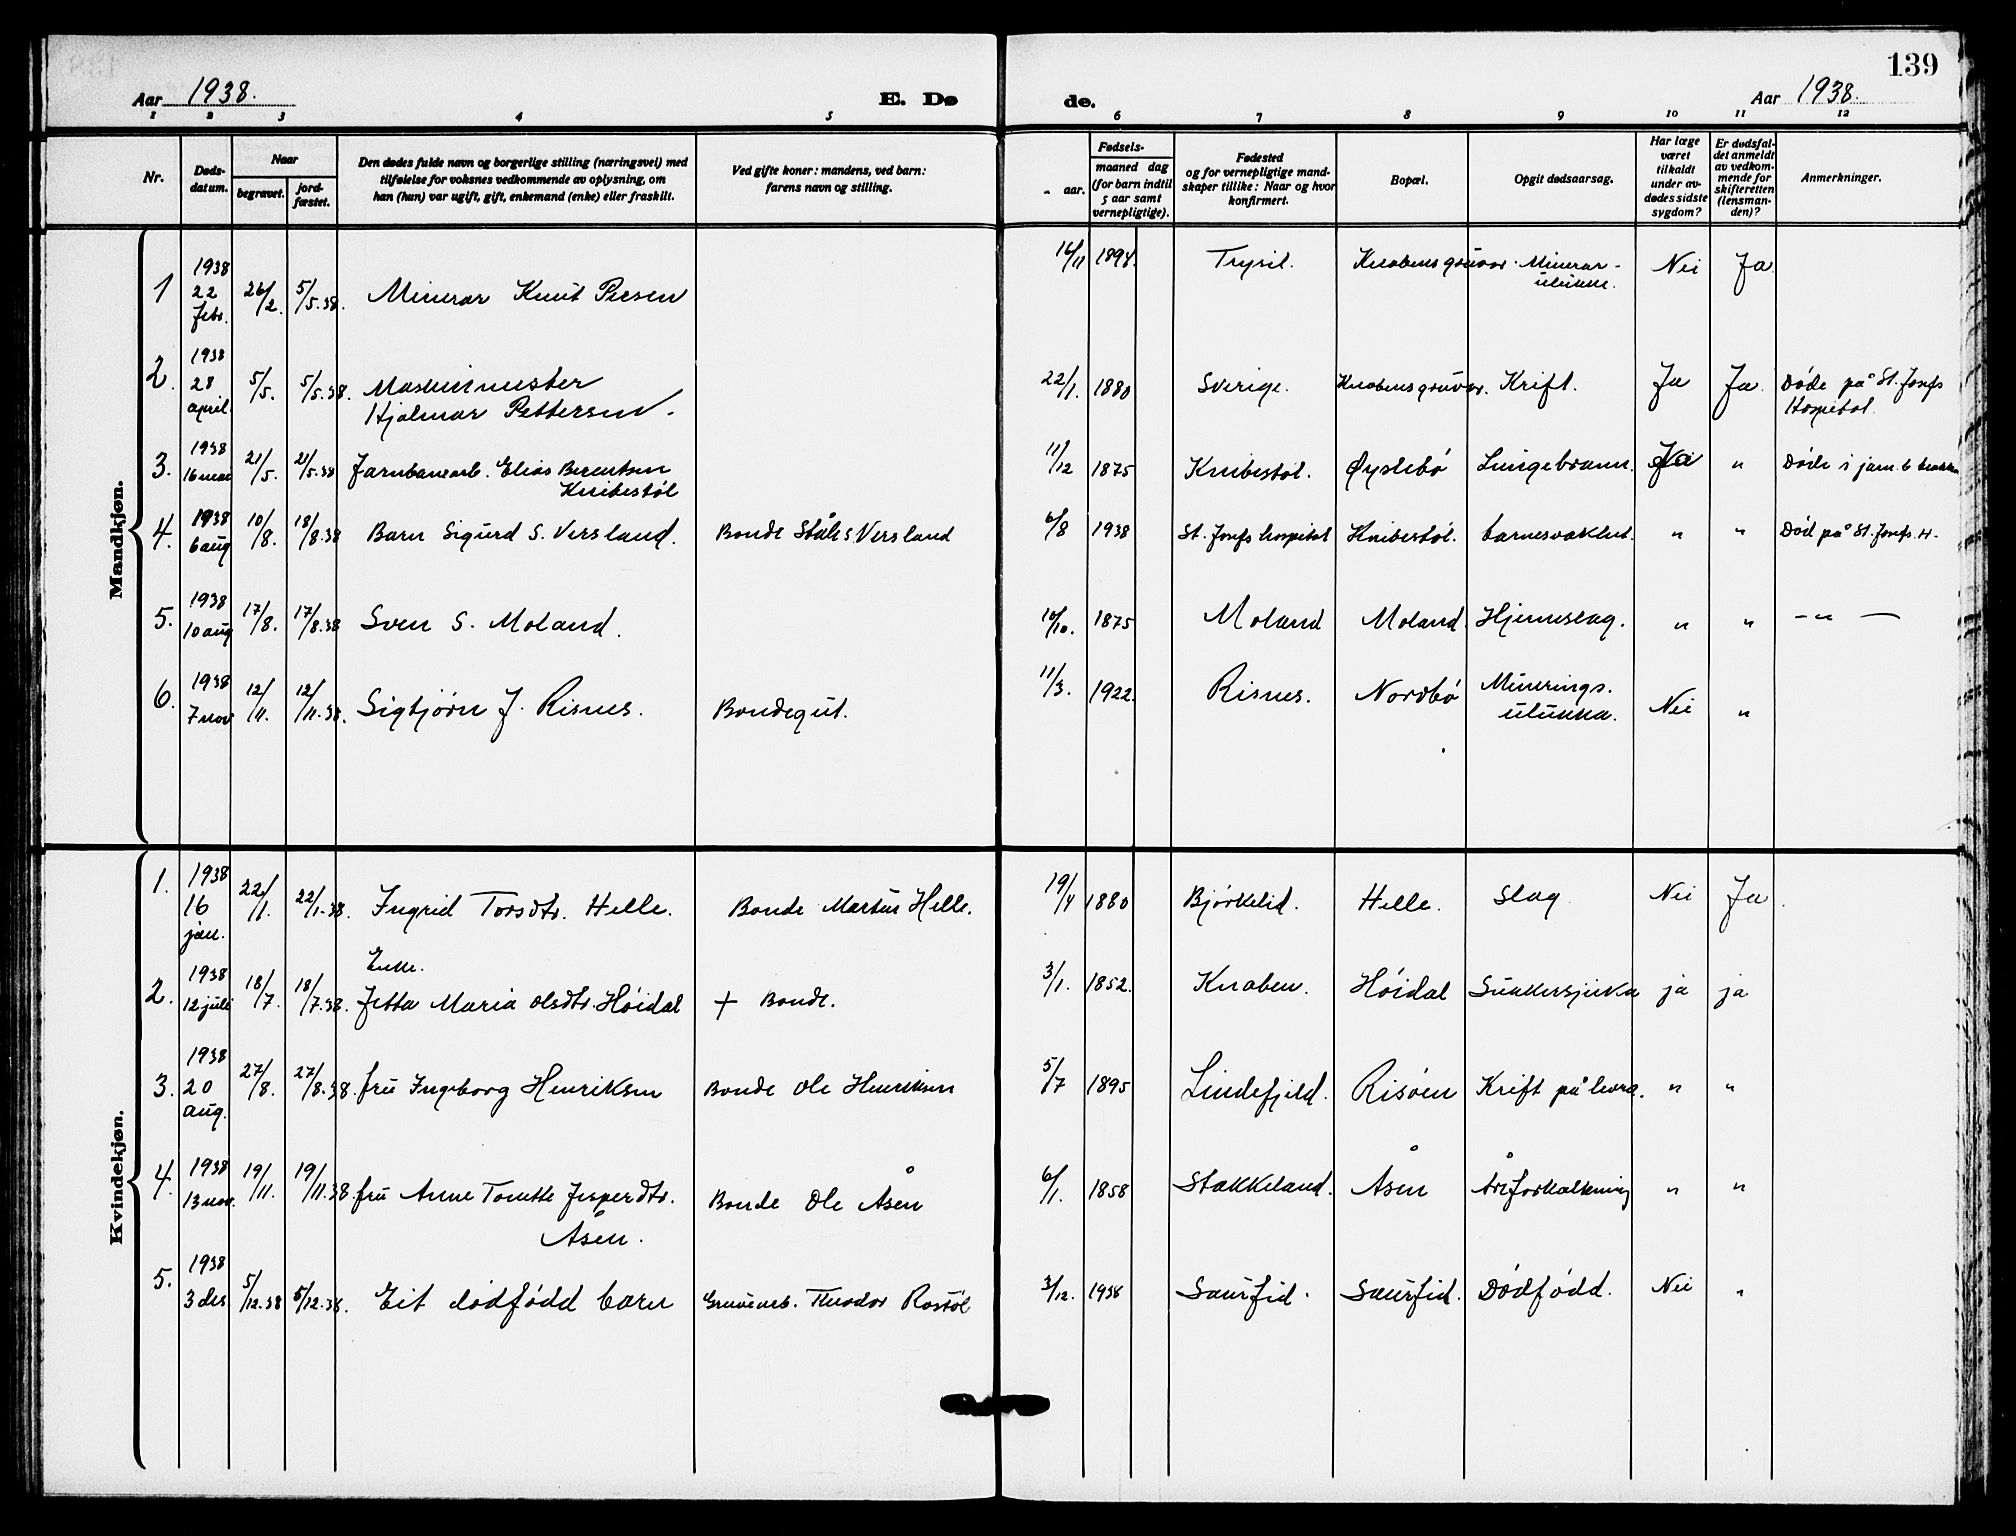 Aar 1938.
E. Dø
de.
139
Aar 1938.
1 2 3 4 5 6 7 8 9 10 11 12
Nr.
Døds-
datum.
Naar
begravet.
jord-
fæstet.
Den dødes fulde navn og borgerlige stilling (næringsvei) med
tilføielse for voksnes vedkommende av oplysning, om
han (hun) var ugift, gift, enkemand (enke) eller fraskilt.
Ved gifte koner: mandens, ved barn:
farens navn og stilling.
Fødsels-
aar.
maaned dag
(for barn indtil
5 aar samt
vernepligtige).
Fødested
og for vernepligtige mand-
skaper tillike: Naar og hvor
konfirmert.
Bopæl.
Opgit dødsaarsag.
Har læge
været
tilkaldt
under av-
dødes sidste
sygdom?
Er dødsfal-
det anmeldt
av vedkom-
mende for
skifteretten
(lensman-
den)?
Anmerkninger.
Mandkjøn.
1 1938 22 febr. 26/2. 5/5.38. Minerar Knut Persen 16/11 1894. Trysil. Knabens gruvor. Minerar-
ulukke. Nei Ja
2. 1938 28 april. 5/5. 5/5.38. Maskinmester
Hjalmar Pettersen. 22/1. 1880 Sverige. Knabens gruvor. Kreft. Ja Ja. Døde på St. Josefs
Hospital.
3. 1938 16 mai 21/5. 21/5.38 Jarnbanearb. Elias Berentsen
Knibestøl 11/12 1875 Knibestøl. Øyslebø Lungebrann. Ja " Døde i jarn.b brakka
4. 1938 6 aug 10/8. 18/8.38 Barn Sigurd S. Versland. Bonde Ståle S Versland 6/8 1938 St. Josefs hospital Knibestøl. barnesvakhet. " " Død på St. Josefs H.
5. 1938 10 aug 17/8. 17/8.38 Sven S. Moland. 10/10. 1875 Moland Moland. Hjerneslag. " " - " -
6. 1938 7 nov 12/11. 12/11.38. Sigbjørn J. Risnes. Bondegut. 11/3. 1922. Risnes. Nordbø Minerings.
ulukka. Nei "
Kvindekjøn.
1. 1938 16 jan. 22/1. 22/1.38. Ingrid Torsdtr. Helle. Bonde Martin Helle. 19/4 1880 Bjørkelid. Helle. Slag Nei Ja.
Enke.
2. 1938 12 juli 18/7. 18/7.38. Jetta Maria Olsdtr. Høidal + Bonde. 3/1. 1852. Knaben. Høidal Sukkersjuka ja ja
3. 1938 20 aug. 27/8. 27/8.38. fru Ingeborg Henriksen Bonde Ole Henriksen 5/7 1895 Lindefjeld. Risøen Kreft på levra. " "
4. 1938 13 nov. 19/11. 19/11.38. fru Anne Tomette Jesperdtr.
Åsen. Bonde Ole Åsen 6/1. 1858 Stakkeland. Åsen Åreforkalkning " "
5. 1938 3 des 5/12.38 5/12.38. Eit dødfødd barn Gruvearb. Theodor Rostøl 3/12. 1938 Saurfid. Saurfid. Dødfødd. Nei "